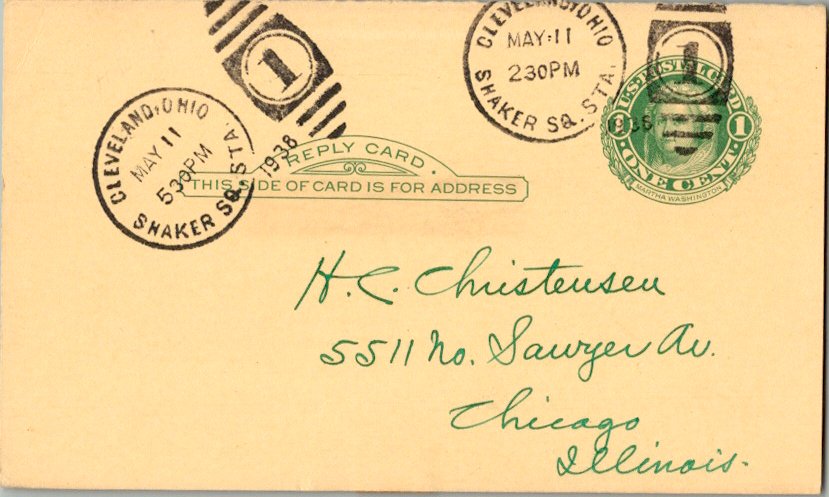 CLEVELAND, OHIO
MAY 11
530PM
SHAKER SQ. STA.
1938
1
CLEVELAND, OHIO
MAY 11
230PM
SHAKER SQ. STA.
1938
1
U.S. POSTAL CARD
1 1
ONE CENT
MARTHA WASHINGTON
REPLY CARD.
THIS SIDE OF CARD IS FOR ADDRESS
H. C. Christensen
5511 No. Sawyer Av.
Chicago
Illinois.